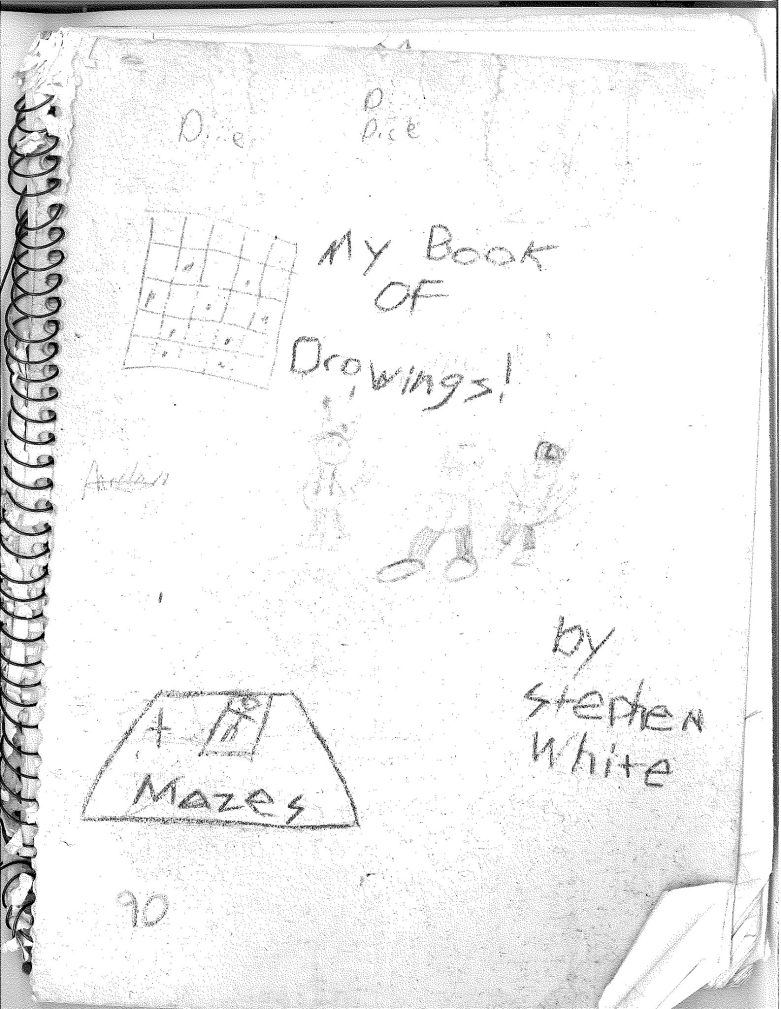 D
Dice
My Book
OF
Drawings!
by
Stephen
White
+
Mazes
90